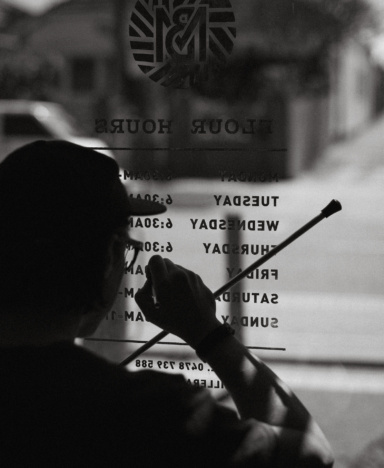 M&M
FLOUR HOURS
MONDAY 6:30AM-
TUESDAY 6:30AM
WEDNESDAY 6:30
THURSDAY 6:30
FRIDAY
SATURDAY
SUNDAY
0478 739 588